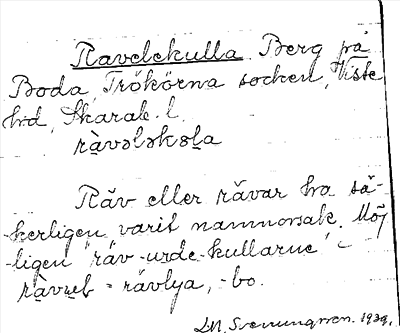 Ravelekulla Berg på
Boda, Trökörna socken, Viste
hd, Skarab. l.
ràvələkəla
Räv eller rävar ha sä-
kerligen varit namnorsak. Möj-
ligen 'räv-urde-kullarne' -
= rävlya, -bo.
Svenungsson. 1939.